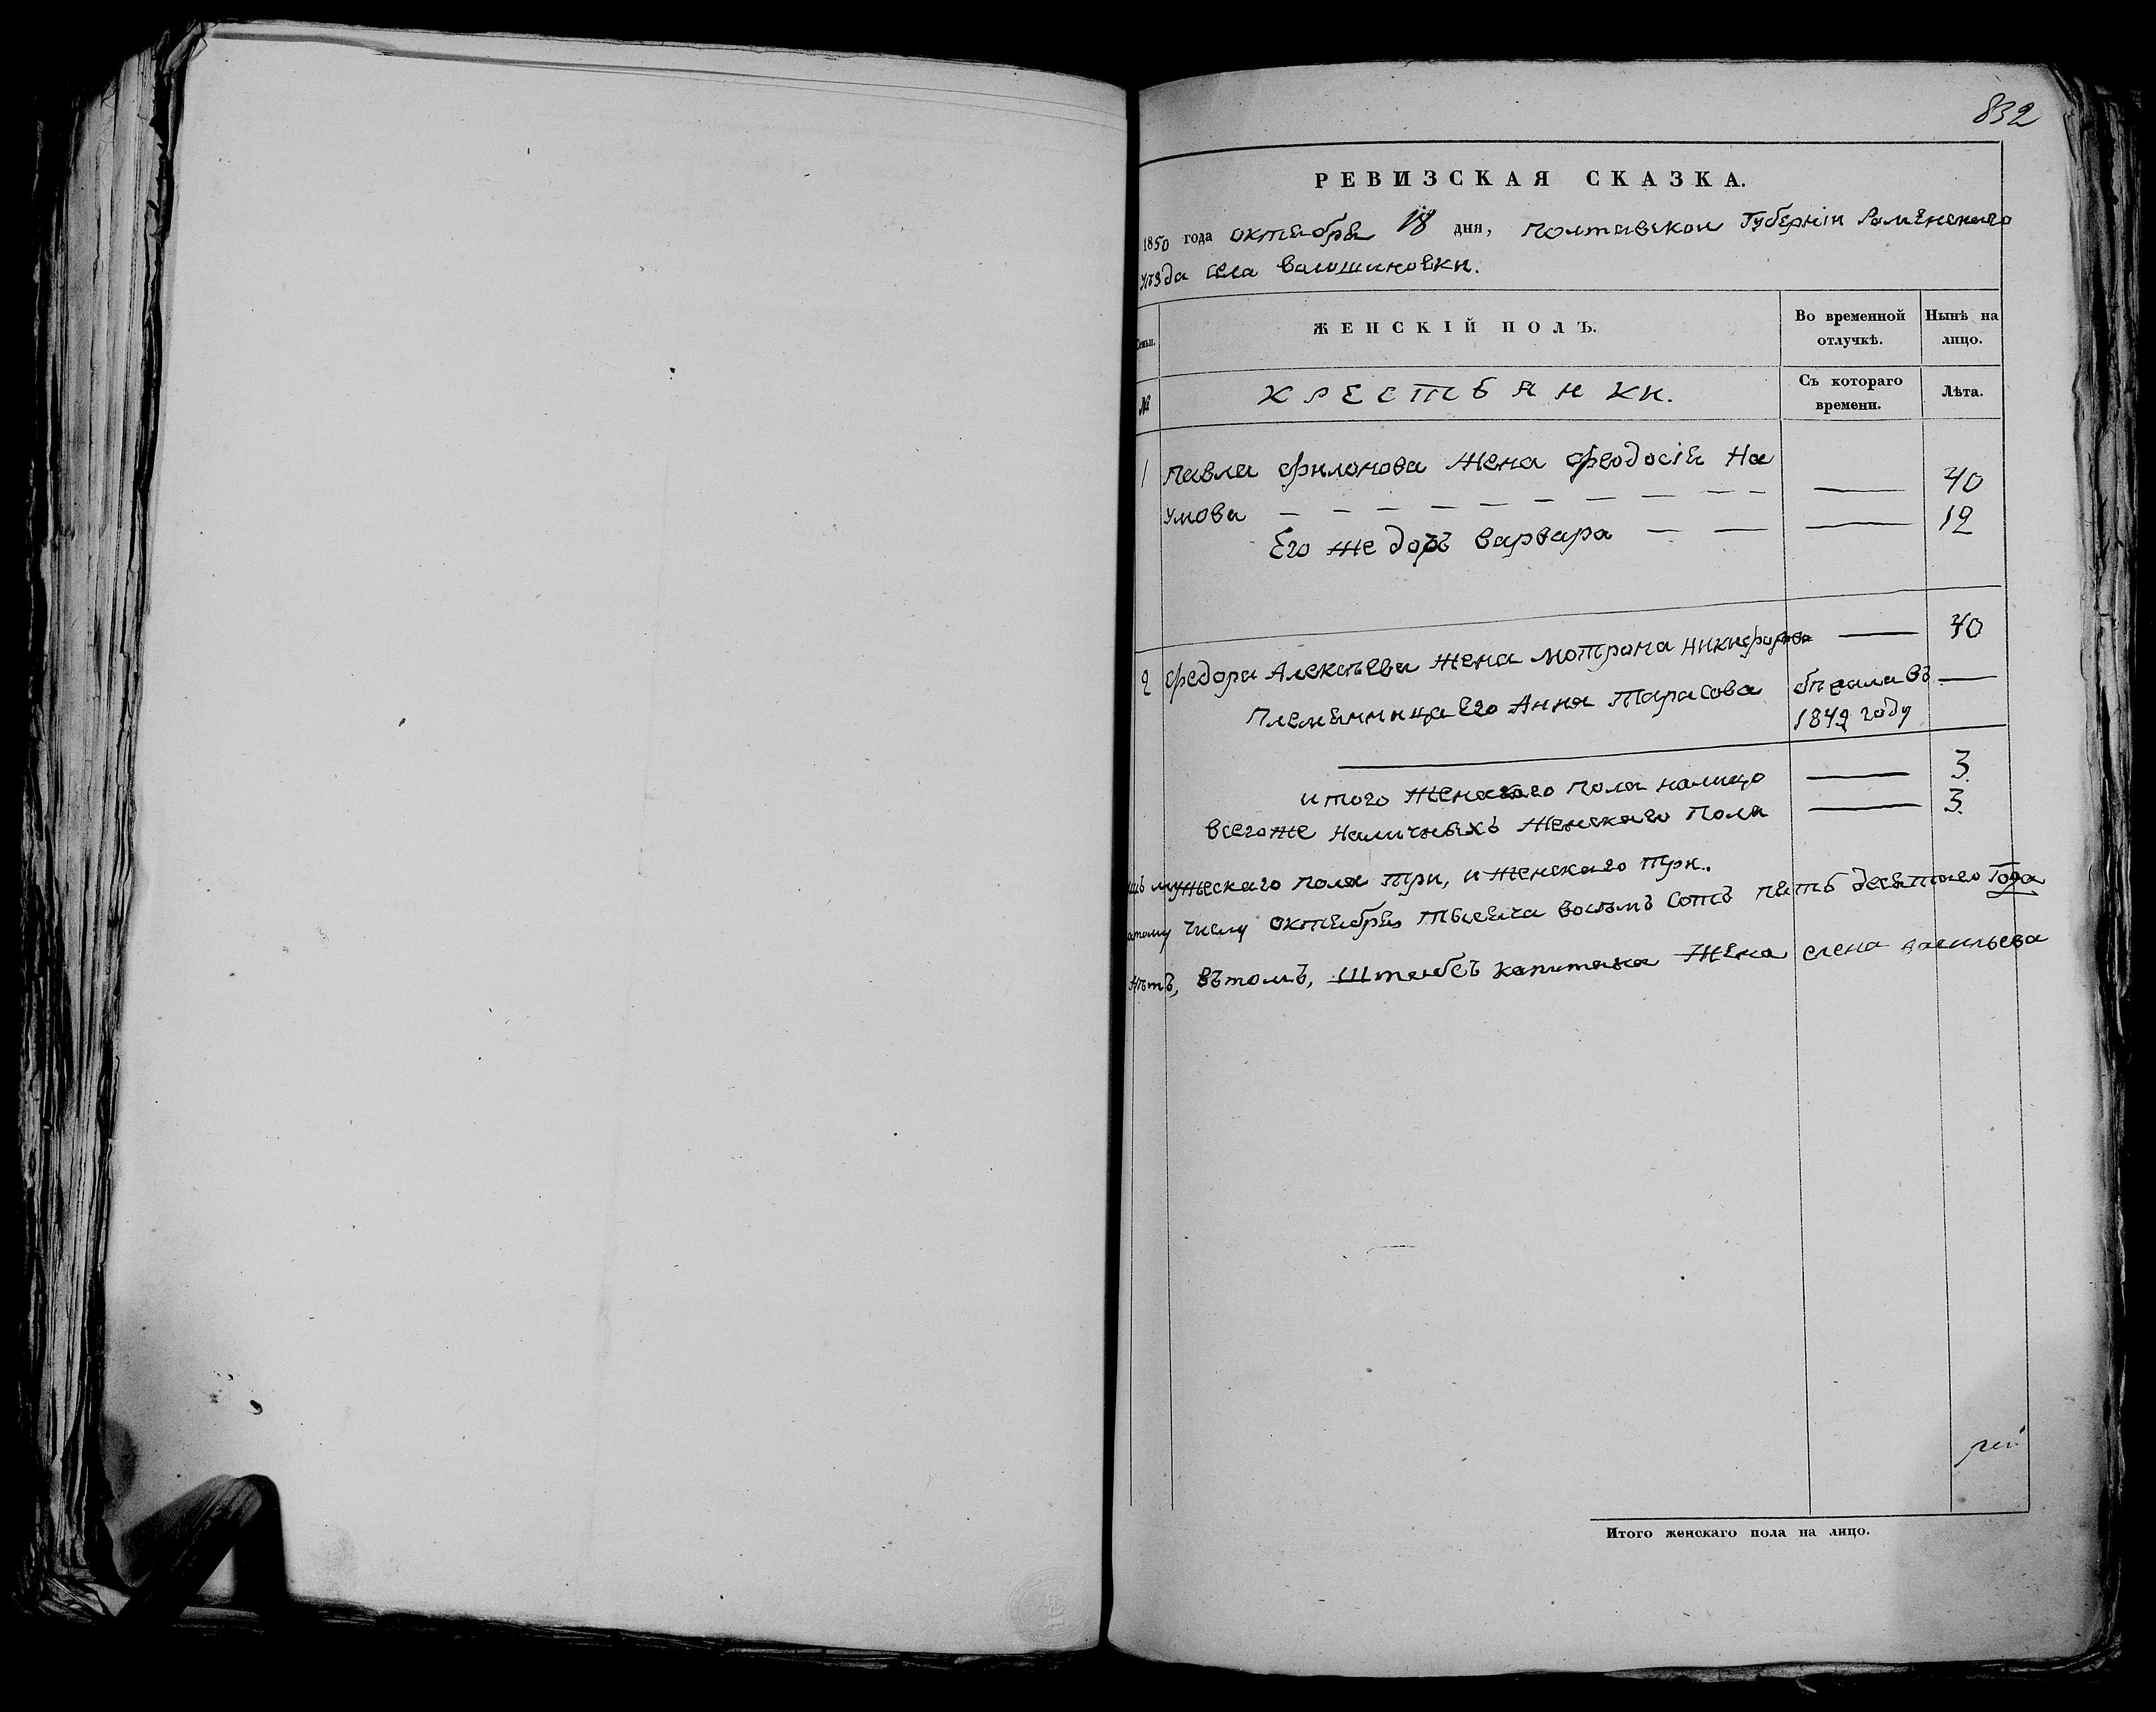 832
РЕВИЗСКАЯ СКАЗКА.
1850 года октября 18 дня, полтавской Губерніи Роменскаго
уѣзда села волошиновки.
Семьи. ЖЕНСКІЙ ПОЛЪ. Во временной отлучкѣ. Нынѣ на лицо.
№ КРЕСТЬЯНКИ. Съ котораго времени. Лѣта.
1 павла филонова Жена феодосія На
умова — 40
Его же дочь варвара — 12
2 федора Алексѣева жена мотрона никифорова — 40
племянница его Анна Тарасова — бежала въ —
1842 году
итого женскаго пола налицо — 3.
всегоже Наличныхъ женскаго Пола — 3.
мужескаго пола три, и женскаго три.
числу октября тысяча восемъ сотъ пятьдесятаго Года
нѣтъ, вътомъ, Штабсъ капитана Жена елена васильева
Итого женскаго пола на лицо.